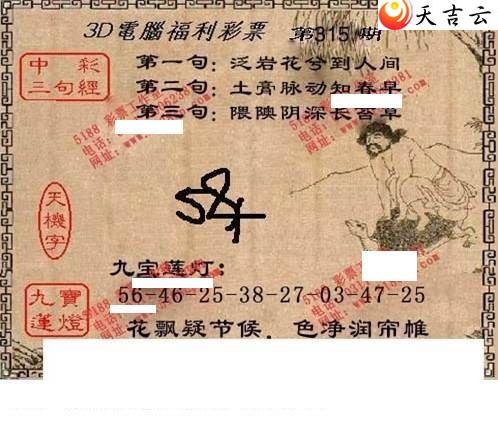 天吉云
3D電腦福利彩票 第315期
中彩
三句經
第一句：泛岩花兮到人间
第二句：土膏脉动知春早
第三句：隈隩阴深长苔草
天機字
九宝莲灯：
九寶蓮燈
56-46-25-38-27-03-47-25
花飘疑节候，色净润帘帷